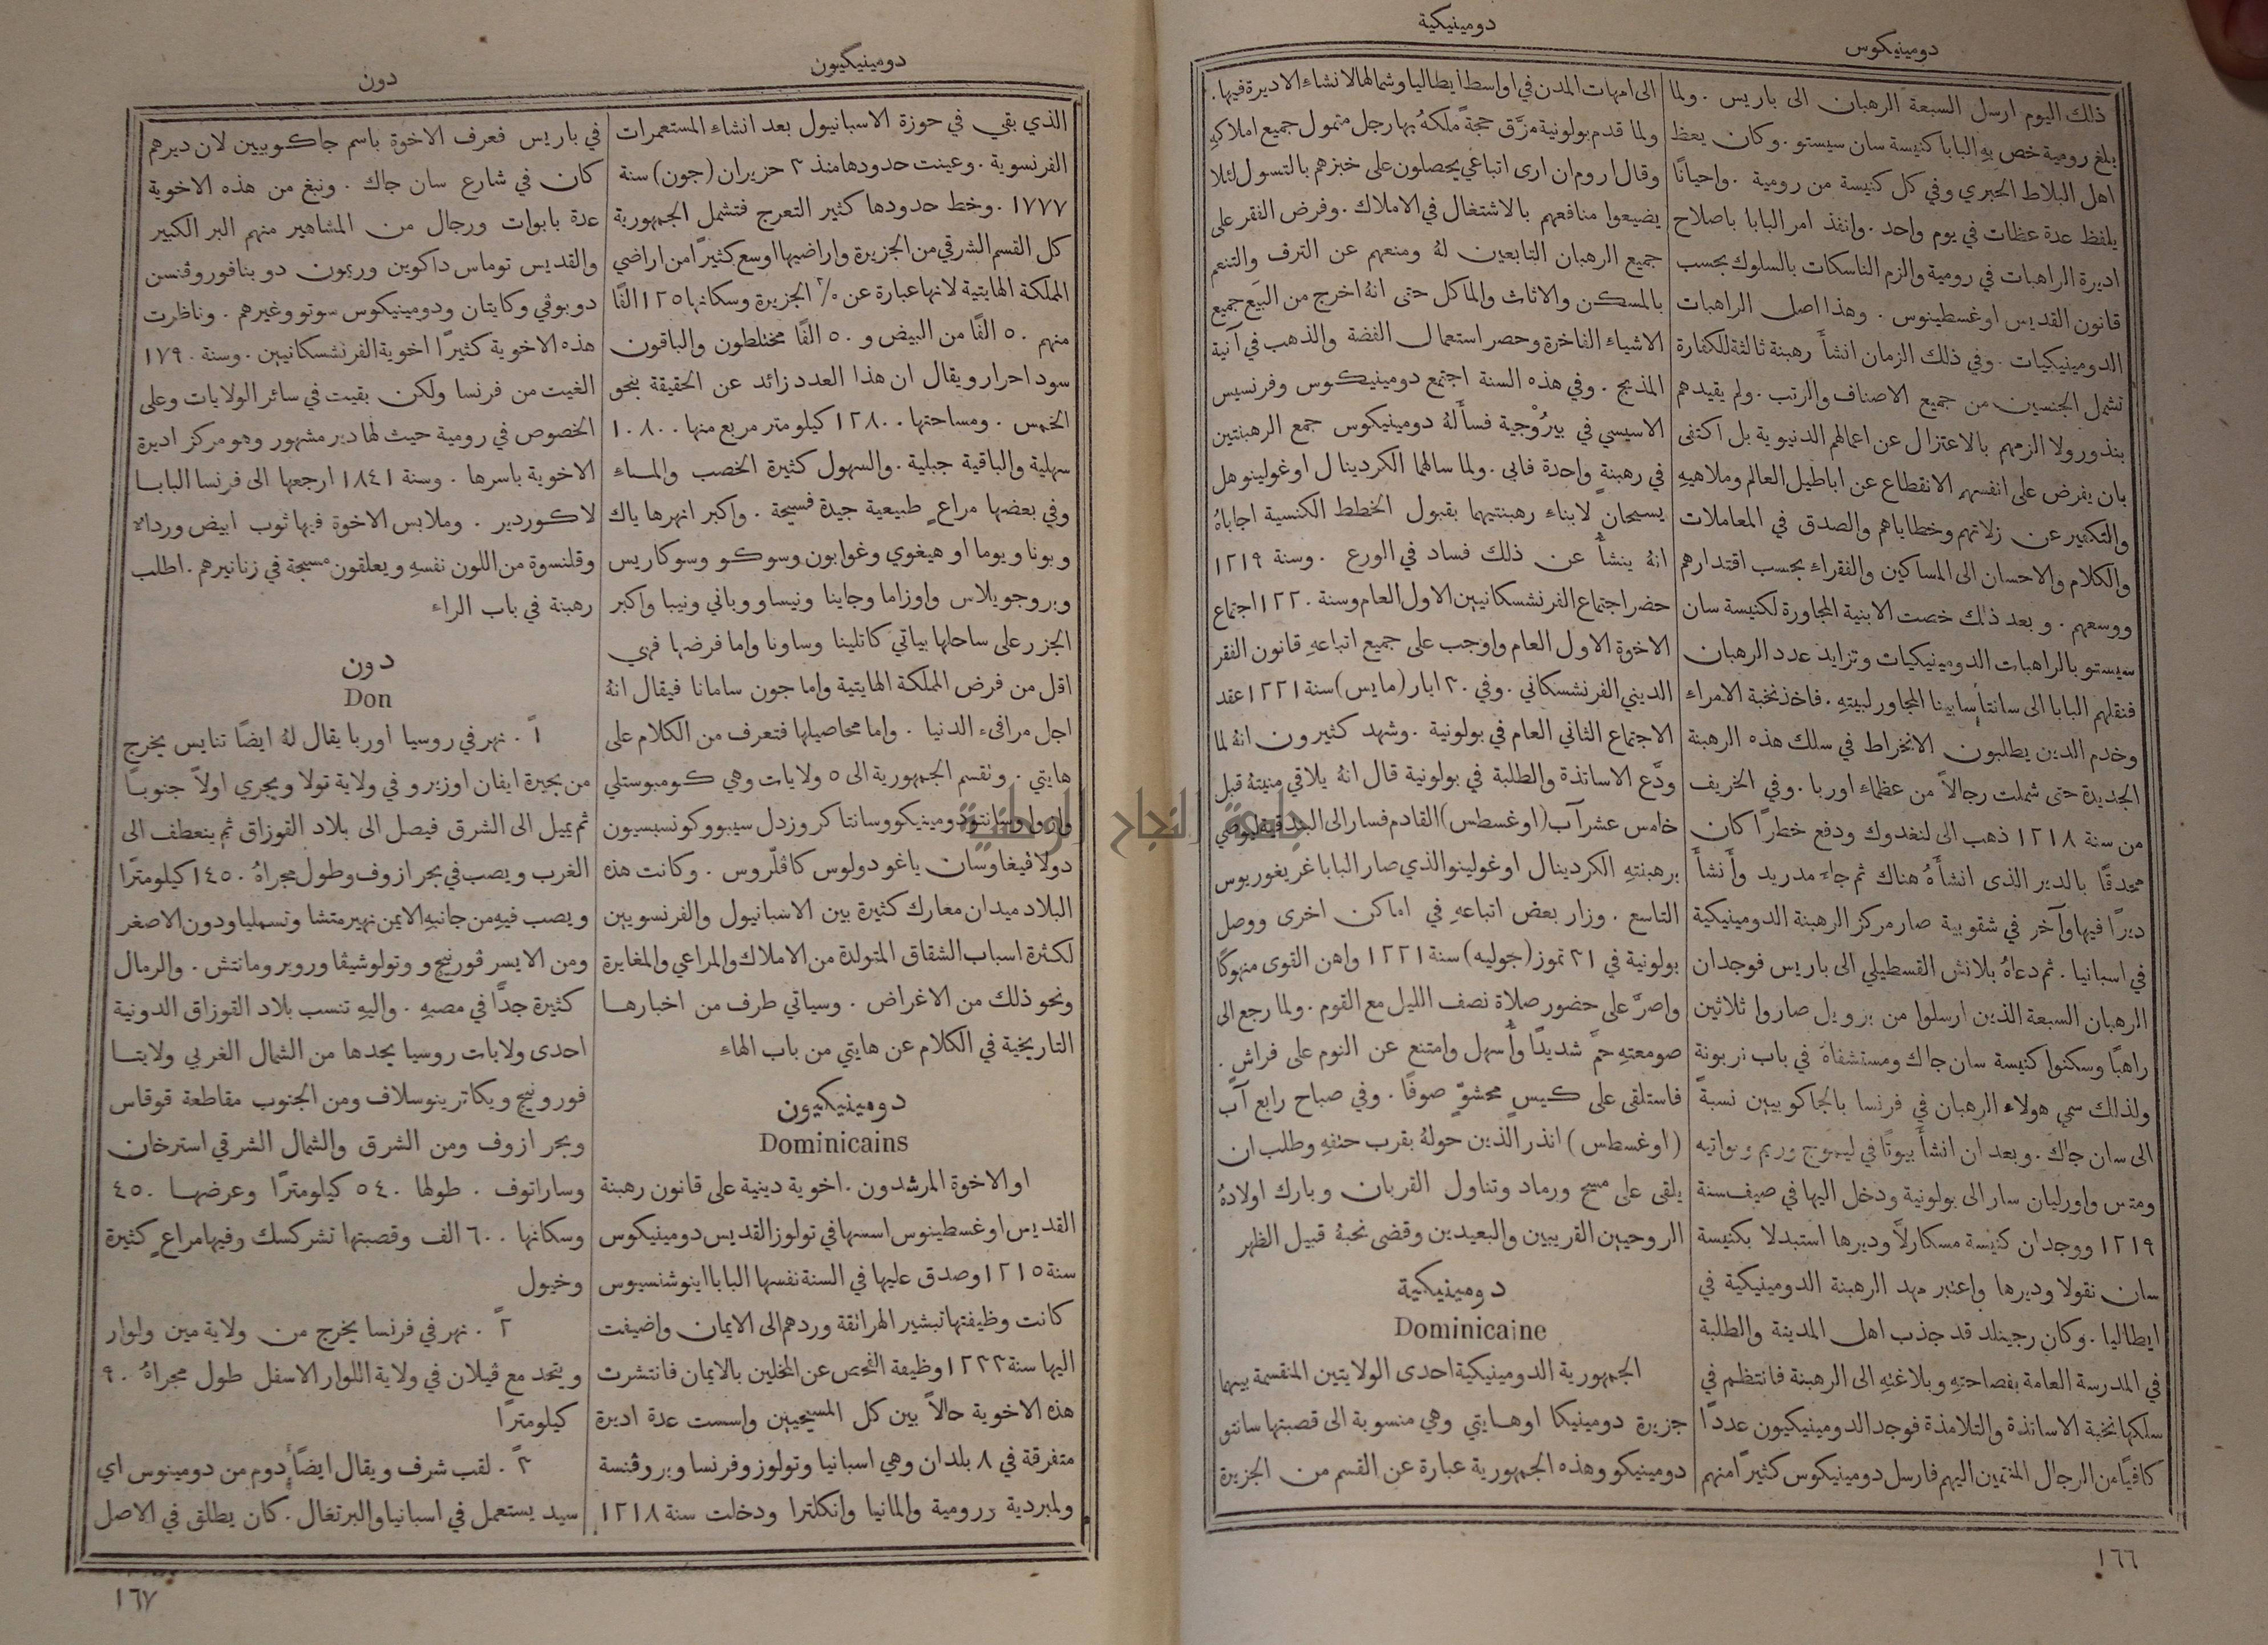 دومينيكوس
دومينيكية
ذلك اليوم ارسل السبعة الرهبان الى باريس . ولما
بلغ رومية خص بهِ البابا كنيسة سان سيستو . وكان يعظ
اهل البلاط الحبري وفي كل كنيسة من رومية . واحيانًا
يلفظ عدة عظات في يوم واحد . وانفذ امر البابا باصلاح
اديرة الراهبات في رومية والزم الناسكات بالسلوك بحسب
قانون القديس اوغسطينوس . وهذا اصل الراهبات
الدومينيكيات . وفي ذلك الزمان انشأ رهبنة ثالثة للكفارة
تشمل الجنسين من جميع الاصناف والرتب . ولم يقيدهم
بنذور ولا الزمهم بالاعتزال عن اعمالهم الدنيوية بل اكتفى
بان يفرض على انفسهم الانقطاع عن اباطيل العالم وملاهيهِ
والتكفير عن زلاتهم وخطاياهم والصدق في المعاملات
والكلام والاحسان الى المساكين والفقراء بحسب اقتدارهم
ووسعهم . وبعد ذلك خصت الابنية المجاورة لكنيسة سان
سيستو بالراهبات الدومينيكيات وتزايد عدد الرهبان
فنقلهم البابا الى سانتا سابينا المجاور لبيتهِ . فاخذ نخبة الامراء
وخدم الدين يطلبون الانخراط في سلك هذه الرهبنة
الجديدة حتى شملت رجالاً من عظماء اوربا . وفي الخريف
من سنة ١٢١٨ ذهب الى لنغدوك ودفع خطرًا كان
محدقًا بالدير الذى انشأهُ هناك ثم جاء مدريد وأنشأ
ديرًا فيها وآخر في شقوبية صار مركز الرهبنة الدومينيكية
في اسبانيا . ثم دعاهُ بلانش القسطيلي الى باريس فوجد ان
الرهبان السبعة الذين ارسلوا من برويل صاروا ثلاثين
راهبًا وسكنوا كنيسة سان جاك ومستشفاهُ في باب نربونة
ولذلك سمي هولاء الرهبان في فرنسا بالجاكوبيين نسبةً
الى سان جاك . وبعد ان انشأ بيوتًا في ليموج وريم وبواتيه
ومتس واورليان سار الى بولونية ودخل اليها في صيف سنة
١٢١٩ ووجد ان كنيسة مسكارلاّ وديرها استبدلا بكنيسة
سان نقولا وديرها واعتبر مهد الرهبنة الدومينيكية في
ايطاليا . وكان رجينلد قد جذب اهل المدينة والطلبة
في المدرسة العامة بفصاحتهِ وبلاغتهِ الى الرهبنة فانتظم في
سلكها نخبة الاساتذة والتلامذة فوجد الدومينيكيون عددًا
كافيًا من الرجال المنتمين اليهم فارسل دومينيكوس كثيرًا منهم
الى امهات المدن في اواسط ايطاليا وشمالها لانشاء الاديرة فيها .
ولما قدم بولونية مزَّق حجةً ملكهُ بها رجل متمول جميع املاكهِ
وقال اروم ان ارى اتباعي يحصلون على خبزهم بالتسول لئلا
يضيعوا منافعهم بالاشتغال في الاملاك . وفرض الفقر على
جميع الرهبان التابعين لهُ ومنعهم عن الترف والتنعم
بالمسكن والاثاث والمآكل حتى انهُ اخرج من البيَع جميع
الاشياء الفاخرة وحصر استعمال الفضة والذهب في آنية
المذبح . وفي هذه السنة اجتمع دومينيكوس وفرنسيس
الاسيسي في بيرُوْجية فسألهُ دومينيكوس جمع الرهبنتين
في رهبنةٍ واحدة فابى . ولما سالهما الكردينال اوغولينو هل
يسمحان لابناء رهبنتيهما بقبول الخطط الكنسية اجاباهُ
انهُ ينشأ عن ذلك فساد في الورع . وسنة ١٢١٩
حضر اجتماع الفرنشسكانيين الاول العام وسنة ١٢٢٠ اجتماع
الاخوة الاول العام واوجب على جميع اتباعهِ قانون الفقر
الديني الفرنشسكاني . وفي ٣٠ ايار (مايس) سنة ١٢٢١ عقد
الاجتماع الثاني العام في بولونية . وشهد كثيرون انهُ لما
ودَّع الاساتذة والطلبة في بولونية قال انهُ يلاقي منيتهُ قبل
خامس عشر آب (اوغسطس) القادم فسار الى البندقية ليوصي
برهبنتهِ الكردينال اوغولينو الذي صار البابا غريغوريوس
التاسع . وزار بعض اتباعهِ في اماكن اخرى ووصل
بولونية في ٣١ تموز (جوليه) سنة ١٢٢١ واهن القوى منهوكًا
واصرَّ على حضور صلاة نصف الليل مع القوم . ولما رجع الى
صومعتهِ حمَّ شديدًا وأُسهل وامتنع عن النوم على فراش .
فاستلقى على كيسٍ محشوٍّ صوفًا . وفي صباح رابع آب
(اوغسطس) انذر الذين حولهُ بقرب حتفهِ وطلب ان
يلقى على مسحٍ ورماد وتناول القربان وبارك اولادهُ
الروحيين القريبين والبعيدين وقضى نحبهُ قبيل الظهر
دومينيكية
Dominicaine
الجمهورية الدومينيكية احدى الولايتين المنقسمة بينهما
جزيرة دومينيكا او هايتي وهي منسوبة الى قصبتها سانتو
دومينيكو وهذه الجمهورية عبارة عن القسم من الجزيرة
١٦٦
دومينيكيون
دون
الذي بقي في حوزة الاسبانيول بعد انشاء المستعمرات
الفرنسوية . وعينت حدودها منذ ٣ حزيران (جون) سنة
١٧٧٧ . وخط حدودها كثير التعرج فتشمل الجمهورية
كل القسم الشرقي من الجزيرة واراضيها اوسع كثيرًا من اراضي
المملكة الهايتية لانها عبارة عن الجزيرة وسكانها ١٢٥ الفًا
منهم ٥٠ الفًا من البيض و ٥٠ الفًا مختلطون والباقون
سود احرار ويقال ان هذا العدد زائد عن الحقيقة بنحو
الخمس . ومساحتها ١٢٨٠٠ كيلومتر مربع منها ١٠٨٠٠
سهلية والباقية جبلية . والسهول كثيرة الخصب والماء
وفي بعضها مراعٍ طبيعية جيدة فسيحة . واكبر انهرها ياك
وبونا ويوما او هيغوي وغوابون وسوكو وسوكاريس
وبروجويلاس واوزاما وجاينا ونيساو وباني ونيبا واكبر
الجزر على ساحلها بياتي كاتلينا وساونا واما فرضها فهي
اقل من فرض المملكة الهايتية واما جون سامانا فيقال انهُ
اجل مرافىء الدنيا . واما محاصيلها فتعرف من الكلام على
هايتي . وتقسم الجمهورية الى ٥ ولايات وهي كومبوستلي
وازوا وسانتو دومينيكو وسانتا كروز دل سيبو وكونسبسيون
دولا ڤيغا وسان ياغو دولوس كاڤلّروس . وكانت هذه
البلاد ميدان معارك كثيرة بين الاسبانيول والفرنسويين
لكثرة اسباب الشقاق المتولدة من الاملاك والمراعي والمغايرة
ونحو ذلك من الاغراض . وسياتي طرف من اخبارها
التاريخية في الكلام عن هايتي من باب الهاء
دومينيكيون
Dominicains
او الاخوة المرشدون . اخوية دينية على قانون رهبنة
القديس اوغسطينوس اسسها في تولوز القديس دومينيكوس
سنة ١٢١٥ وصدق عليها في السنة نفسها البابا اينوشنسيوس
كانت وظيفتها تبشير الهراتقة وردهم الى الايمان واضيفت
اليها سنة ١٢٣٣ وظيفة الفحص عن المخلين بالايمان فانتشرت
هذه الاخوية حالاً بين كل المسيحيين واسست عدة اديرة
متفرقة في ٨ بلدان وهي اسبانيا وتولوز وفرنسا وبروڤنسة
ولمبردية ورومية والمانيا وانكلترا ودخلت سنة ١٢١٨
في باريس فعرف الاخوة باسم جاكوبيين لان ديرهم
كان في شارع سان جاك . ونبغ من هذه الاخوية
عدة بابوات ورجال من المشاهير منهم البر الكبير
والقديس توماس داكوين وريمون دو بنافور وڤنسن
دو بوڤي وكايتان ودومينيكوس سوتو وغيرهم . وناظرت
هذه الاخوية كثيرًا اخوية الفرنشسكانيين . وسنة ١٧٩٠
الغيت من فرنسا ولكن بقيت في سائر الولايات وعلى
الخصوص في رومية حيث لها دير مشهور وهو مركز اديرة
الاخوية باسرها . وسنة ١٨٤١ ارجعها الى فرنسا البابا
لاكوردير . وملابس الاخوة فيها ثوب ابيض ورداء
وقلنسوة من اللون نفسهِ ويعلقون مسبحة في زنانيرهم . اطلب
رهبنة في باب الراء
دون
Don
١ . نهر في روسيا اوربا يقال لهُ ايضًا تنايس يخرج
من بحيرة ايفان اوزيرو في ولاية تولا ويجري اولاً جنوبًا
ثم يميل الى الشرق فيصل الى بلاد القوزاق ثم ينعطف الى
الغرب ويصب في بحر ازوف وطول مجراهُ ١٤٥٠ كيلومترًا
ويصب فيهِ من جانبهِ الايمن نهير متشا وتسمليا ودون الاصغر
ومن الايسر ڤورنيج و وتولوشيڤا وروبر ومانتش . والرمال
كثيرة جدًّا في مصبهِ . واليهِ تنسب بلاد القوزاق الدونية
احدى ولايات روسيا يحدها من الشمال الغربي ولايتا
فورونيج ويكاترينوسلاف ومن الجنوب مقاطعة قوقاس
وبحر ازوف ومن الشرق والشمال الشرقي استرخان
وساراتوف . طولها ٥٤٠ كيلومترًا وعرضها ٤٥٠
وسكانها ٦٠٠ الف وقصبتها تشركسك وفيها مراعٍ كثيرة
وخيول
٢ . نهر في فرنسا يخرج من ولاية مين ولوار
ويتحد مع ڤيلان في ولاية اللوار الاسفل طول مجراهُ ٩٠
كيلومترًا
٣ . لقب شرف ويقال ايضًا دوم من دومينوس اي
سيد يستعمل في اسبانيا والبرتغال . كان يطلق في الاصل
١٦٧
جامعة النجاح الوطنية